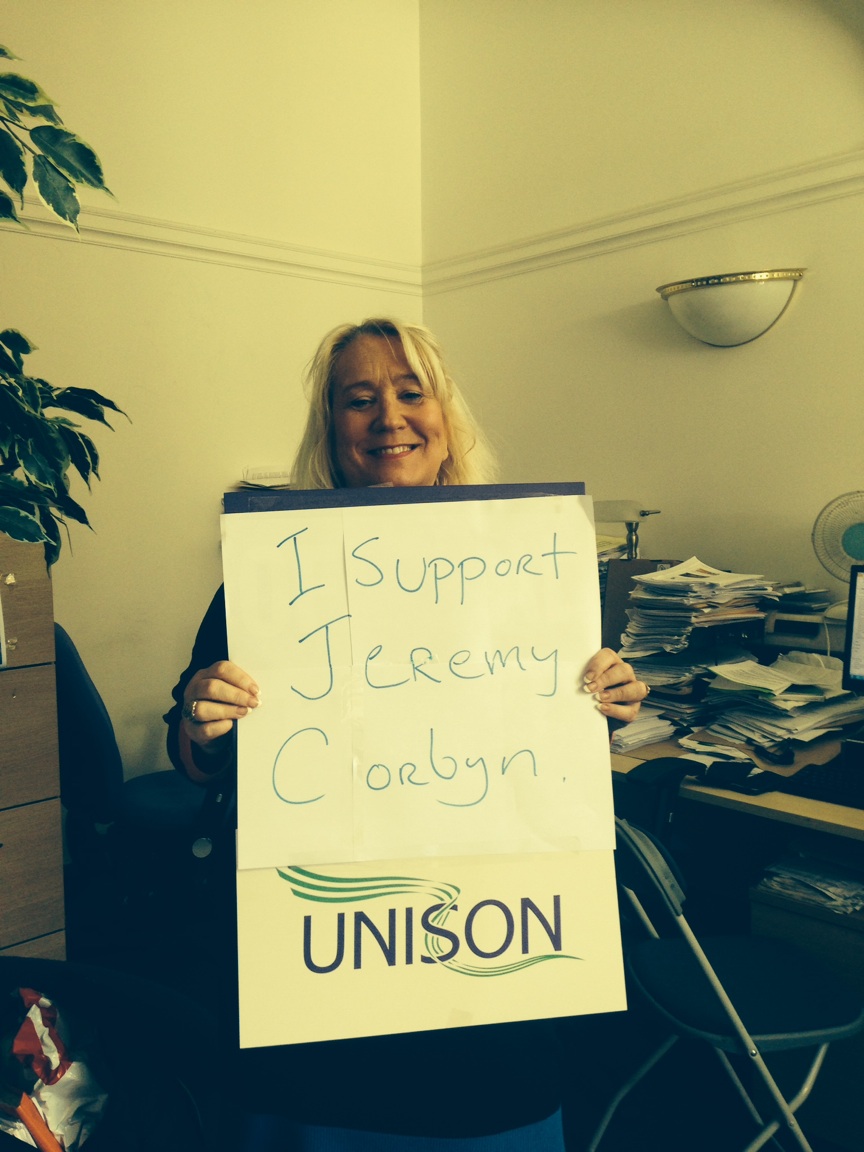 I Support
Jeremy
Corbyn.
UNISON